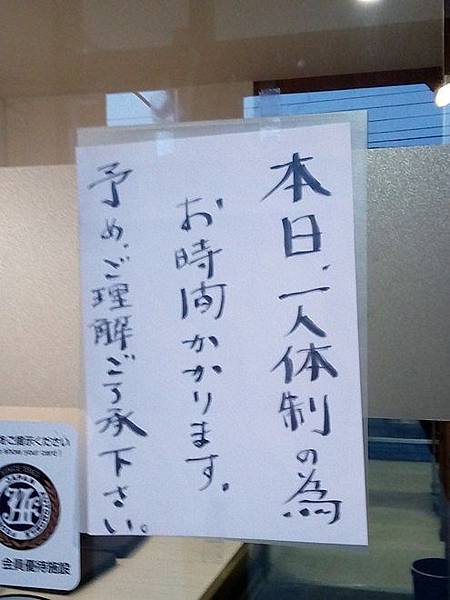 本日、一人体制の為
お時間かかります。
予め、ご理解ご了承下さい。
をご提示ください
show your card!
JAPAN
JAF
会員優待施設